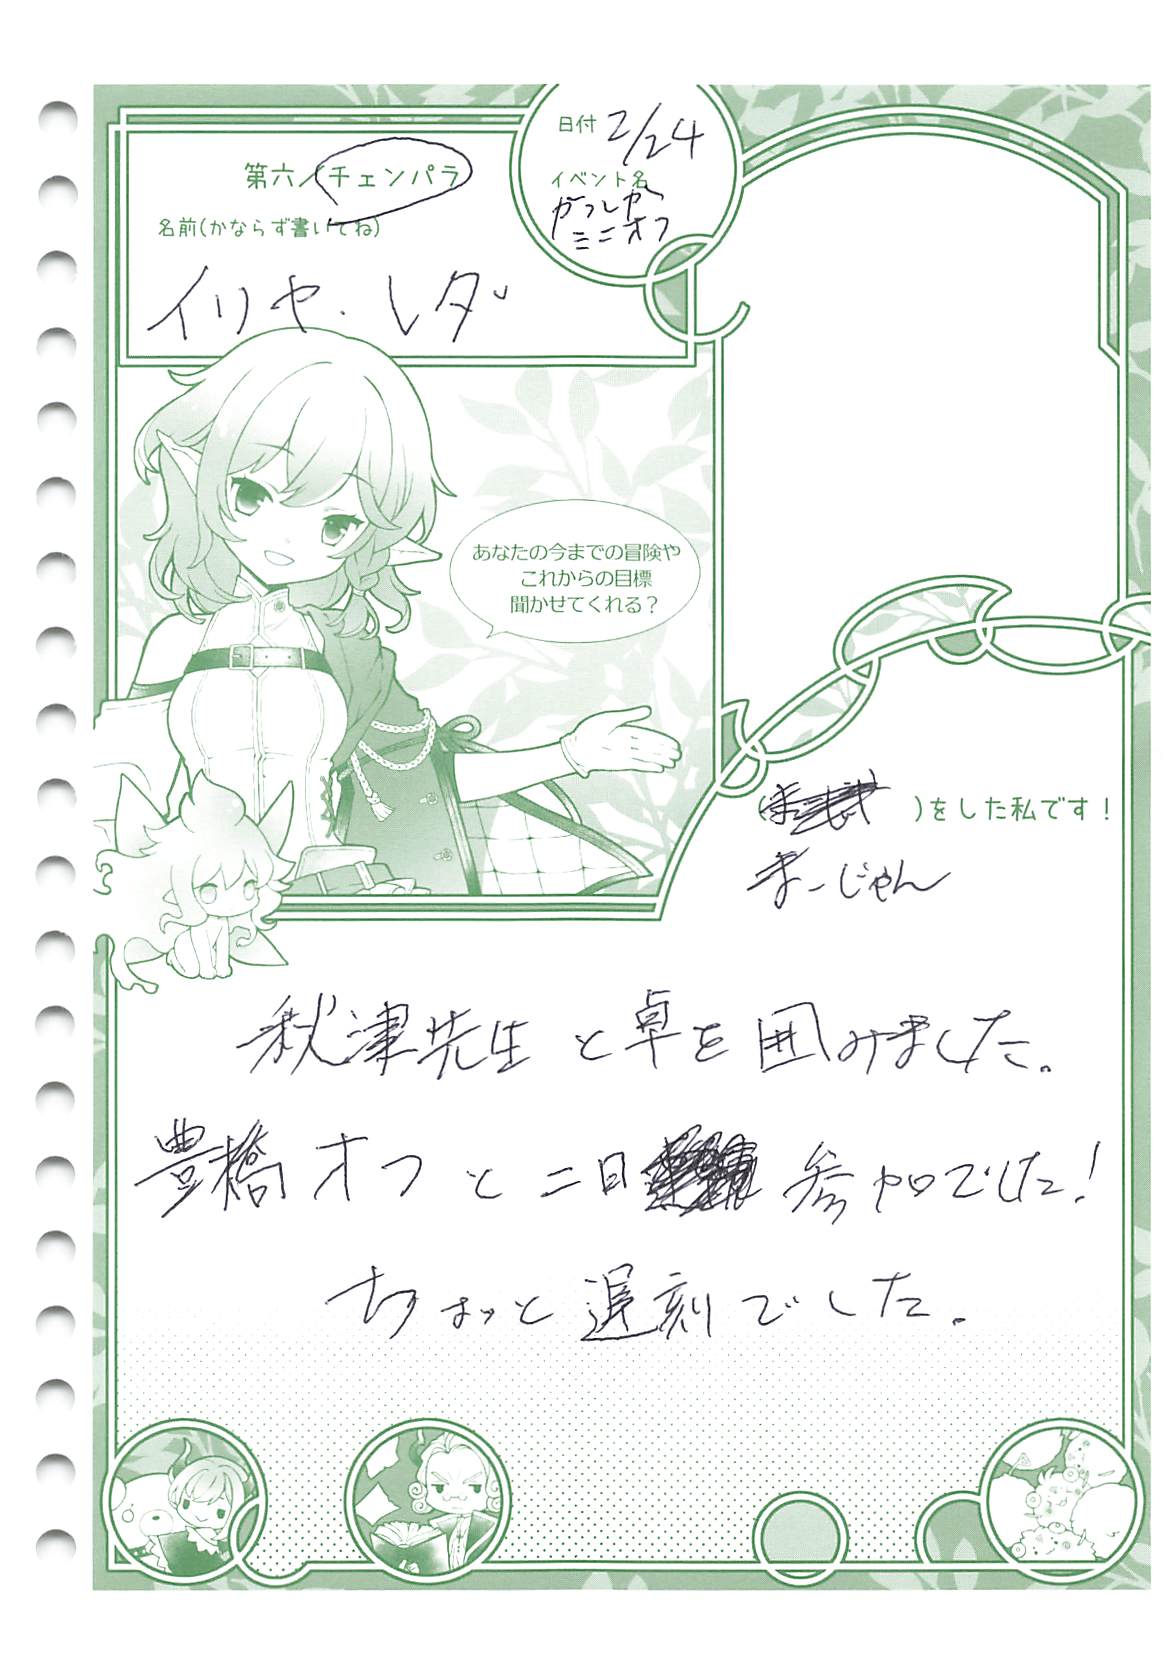 日付 2/24
第六/チェンパラ
イベント名
ミニオフ
名前(かならず書いてね)
イリヤ・レダ
あなたの今までの冒険や
これからの目標
聞かせてくれる?
( )をした私です!
まーじゃん
秋津先生と卓を囲みました。
豊橋オフと二日 参加でした!
ちょっと遅刻でした。